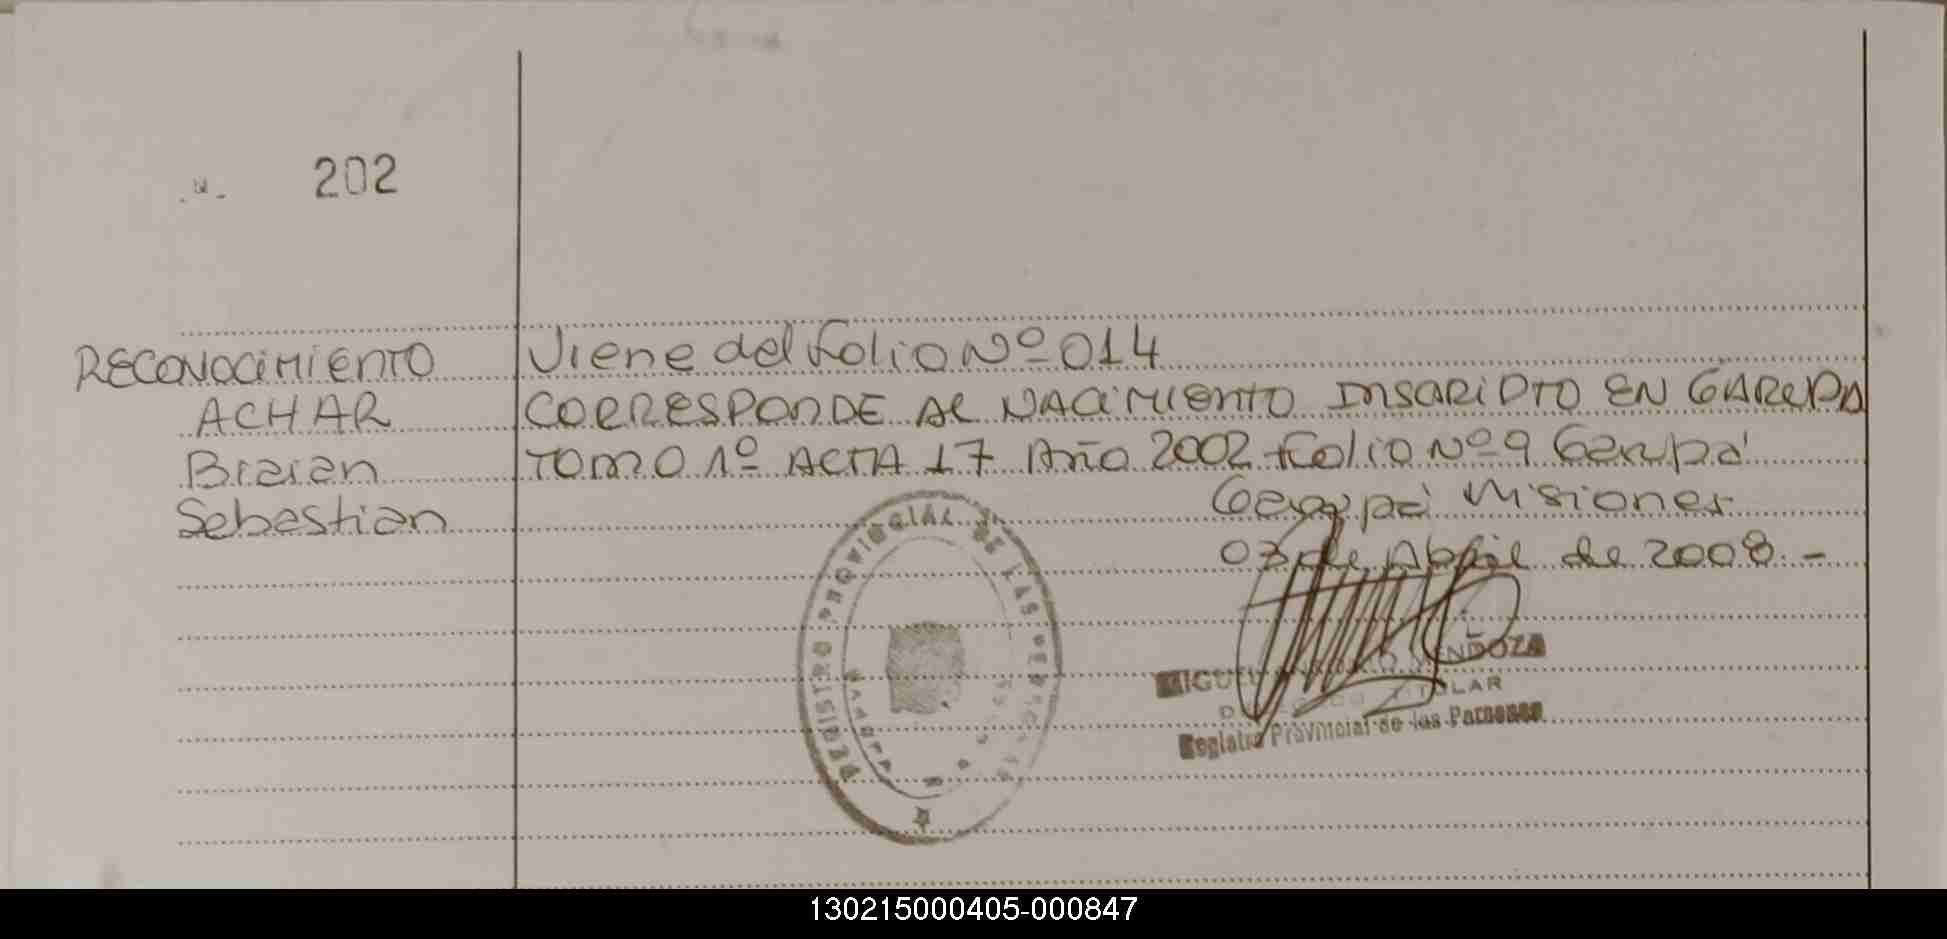 202
RECONOCIMIENTO
ACHAR
Braian
Sebastian
Viene del folio Nº 014
CORRESPONDE AL NACIMIENTO INSCRIPTO EN GARUPA
TOMO 1º ACTA 17 Año 2002 Folio Nº 9 Garupá
Garupá Misiones
03 de Abril de 2008.-
REGISTRO PROVINCIAL DE LAS PERSONAS
MIGUEL MENDOZA
TITULAR
Registro Provincial de las Personas
130215000405-000847